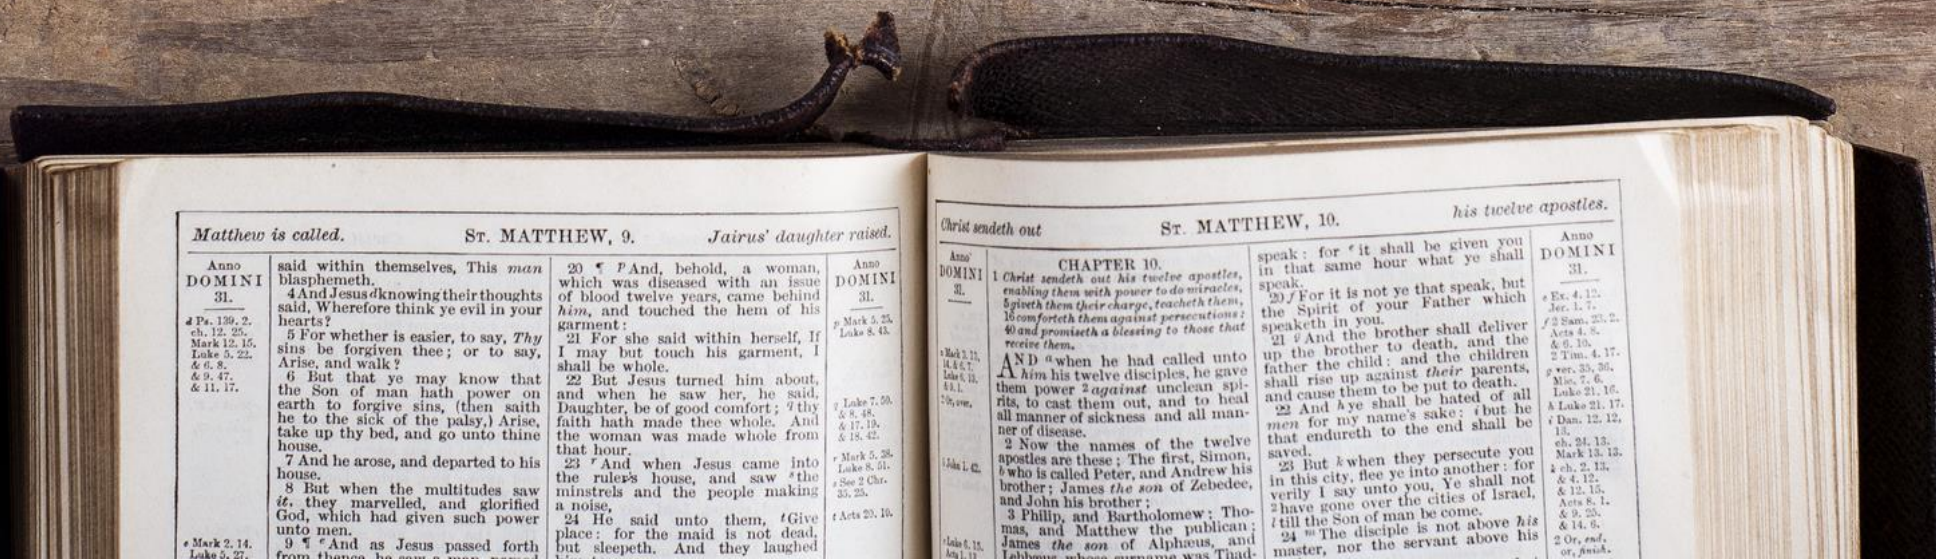 Matthew is called. ST. MATTHEW, 9. Jairus' daughter raised.
Anno
DOMINI
31.
d Ps. 139. 2.
ch. 12. 25.
Mark 12. 15.
Luke 5. 22.
& 6. 8.
& 9. 47.
& 11. 17.
e Mark 2. 14.
Luke 5. 27.
said within themselves, This man
blasphemeth.
4 And Jesus d knowing their thoughts
said, Wherefore think ye evil in your
hearts?
5 For whether is easier, to say, Thy
sins be forgiven thee; or to say,
Arise, and walk?
6 But that ye may know that
the Son of man hath power on
earth to forgive sins, (then saith
he to the sick of the palsy,) Arise,
take up thy bed, and go unto thine
house.
7 And he arose, and departed to his
house.
8 But when the multitudes saw
it, they marvelled, and glorified
God, which had given such power
unto men.
9 ¶ e And as Jesus passed forth
from thence, he saw a man, named
20 ¶ p And, behold, a woman,
which was diseased with an issue
of blood twelve years, came behind
him, and touched the hem of his
garment:
21 For she said within herself, If
I may but touch his garment, I
shall be whole.
22 But Jesus turned him about,
and when he saw her, he said,
Daughter, be of good comfort; q thy
faith hath made thee whole. And
the woman was made whole from
that hour.
23 r And when Jesus came into
the ruler's house, and saw s the
minstrels and the people making
a noise,
24 He said unto them, t Give
place: for the maid is not dead,
but sleepeth. And they laughed
Anno
DOMINI
31.
p Mark 5. 25.
Luke 8. 43.
q Luke 7. 50.
& 8. 48.
& 17. 19.
& 18. 42.
r Mark 5. 38.
Luke 8. 51.
s See 2 Chr.
35. 25.
t Acts 20. 10.
Christ sendeth out ST. MATTHEW, 10. his twelve apostles.
Anno
DOMINI
31.
a Mark 3. 13,
14. & 6. 7.
Luke 6. 13.
& 9. 1.
2 Or, over.
b John 1. 42.
c Luke 6. 15.
Acts 1. 13.
CHAPTER 10.
1 Christ sendeth out his twelve apostles,
enabling them with power to do miracles,
5 giveth them their charge, teacheth them,
16 comforteth them against persecutions:
40 and promiseth a blessing to those that
receive them.
AND a when he had called unto
him his twelve disciples, he gave
them power 2 against unclean spi-
rits, to cast them out, and to heal
all manner of sickness and all man-
ner of disease.
2 Now the names of the twelve
apostles are these; The first, Simon,
b who is called Peter, and Andrew his
brother; James the son of Zebedee,
and John his brother;
3 Philip, and Bartholomew; Tho-
mas, and Matthew the publican;
James the son of Alphæus, and
Lebbæus, whose surname was Thad-
speak: for e it shall be given you
in that same hour what ye shall
speak.
20 f For it is not ye that speak, but
the Spirit of your Father which
speaketh in you.
21 g And the brother shall deliver
up the brother to death, and the
father the child: and the children
shall rise up against their parents,
and cause them to be put to death.
22 And h ye shall be hated of all
men for my name's sake: i but he
that endureth to the end shall be
saved.
23 But k when they persecute you
in this city, flee ye into another: for
verily I say unto you, Ye shall not
2 have gone over the cities of Israel,
l till the Son of man be come.
24 m The disciple is not above his
master, nor the servant above his
Anno
DOMINI
31.
e Ex. 4. 12.
Jer. 1. 7.
f 2 Sam. 23. 2.
Acts 4. 8.
& 6. 10.
2 Tim. 4. 17.
g ver. 35, 36.
Mic. 7. 6.
Luke 21. 16.
h Luke 21. 17.
i Dan. 12. 12,
13.
ch. 24. 13.
Mark 13. 13.
k ch. 2. 13.
& 4. 12.
& 12. 15.
Acts 8. 1.
& 9. 25.
& 14. 6.
2 Or, end,
or, finish.